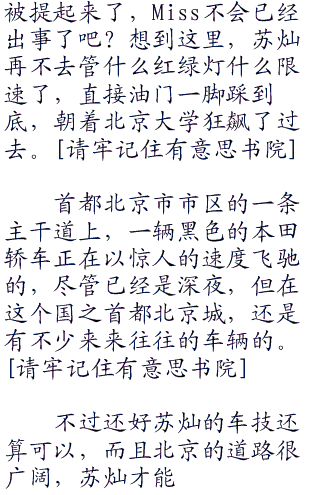 被提起来了，Miss不会已经
出事了吧？想到这里，苏灿
再不去管什么红绿灯什么限
速了，直接油门一脚踩到
底，朝着北京大学狂飙了过
去。[请牢记住有意思书院]
首都北京市市区的一条
主干道上，一辆黑色的本田
轿车正在以惊人的速度飞驰
的，尽管已经是深夜，但在
这个国之首都北京城，还是
有不少来来往往的车辆的。
[请牢记住有意思书院]
不过还好苏灿的车技还
算可以，而且北京的道路很
广阔，苏灿才能